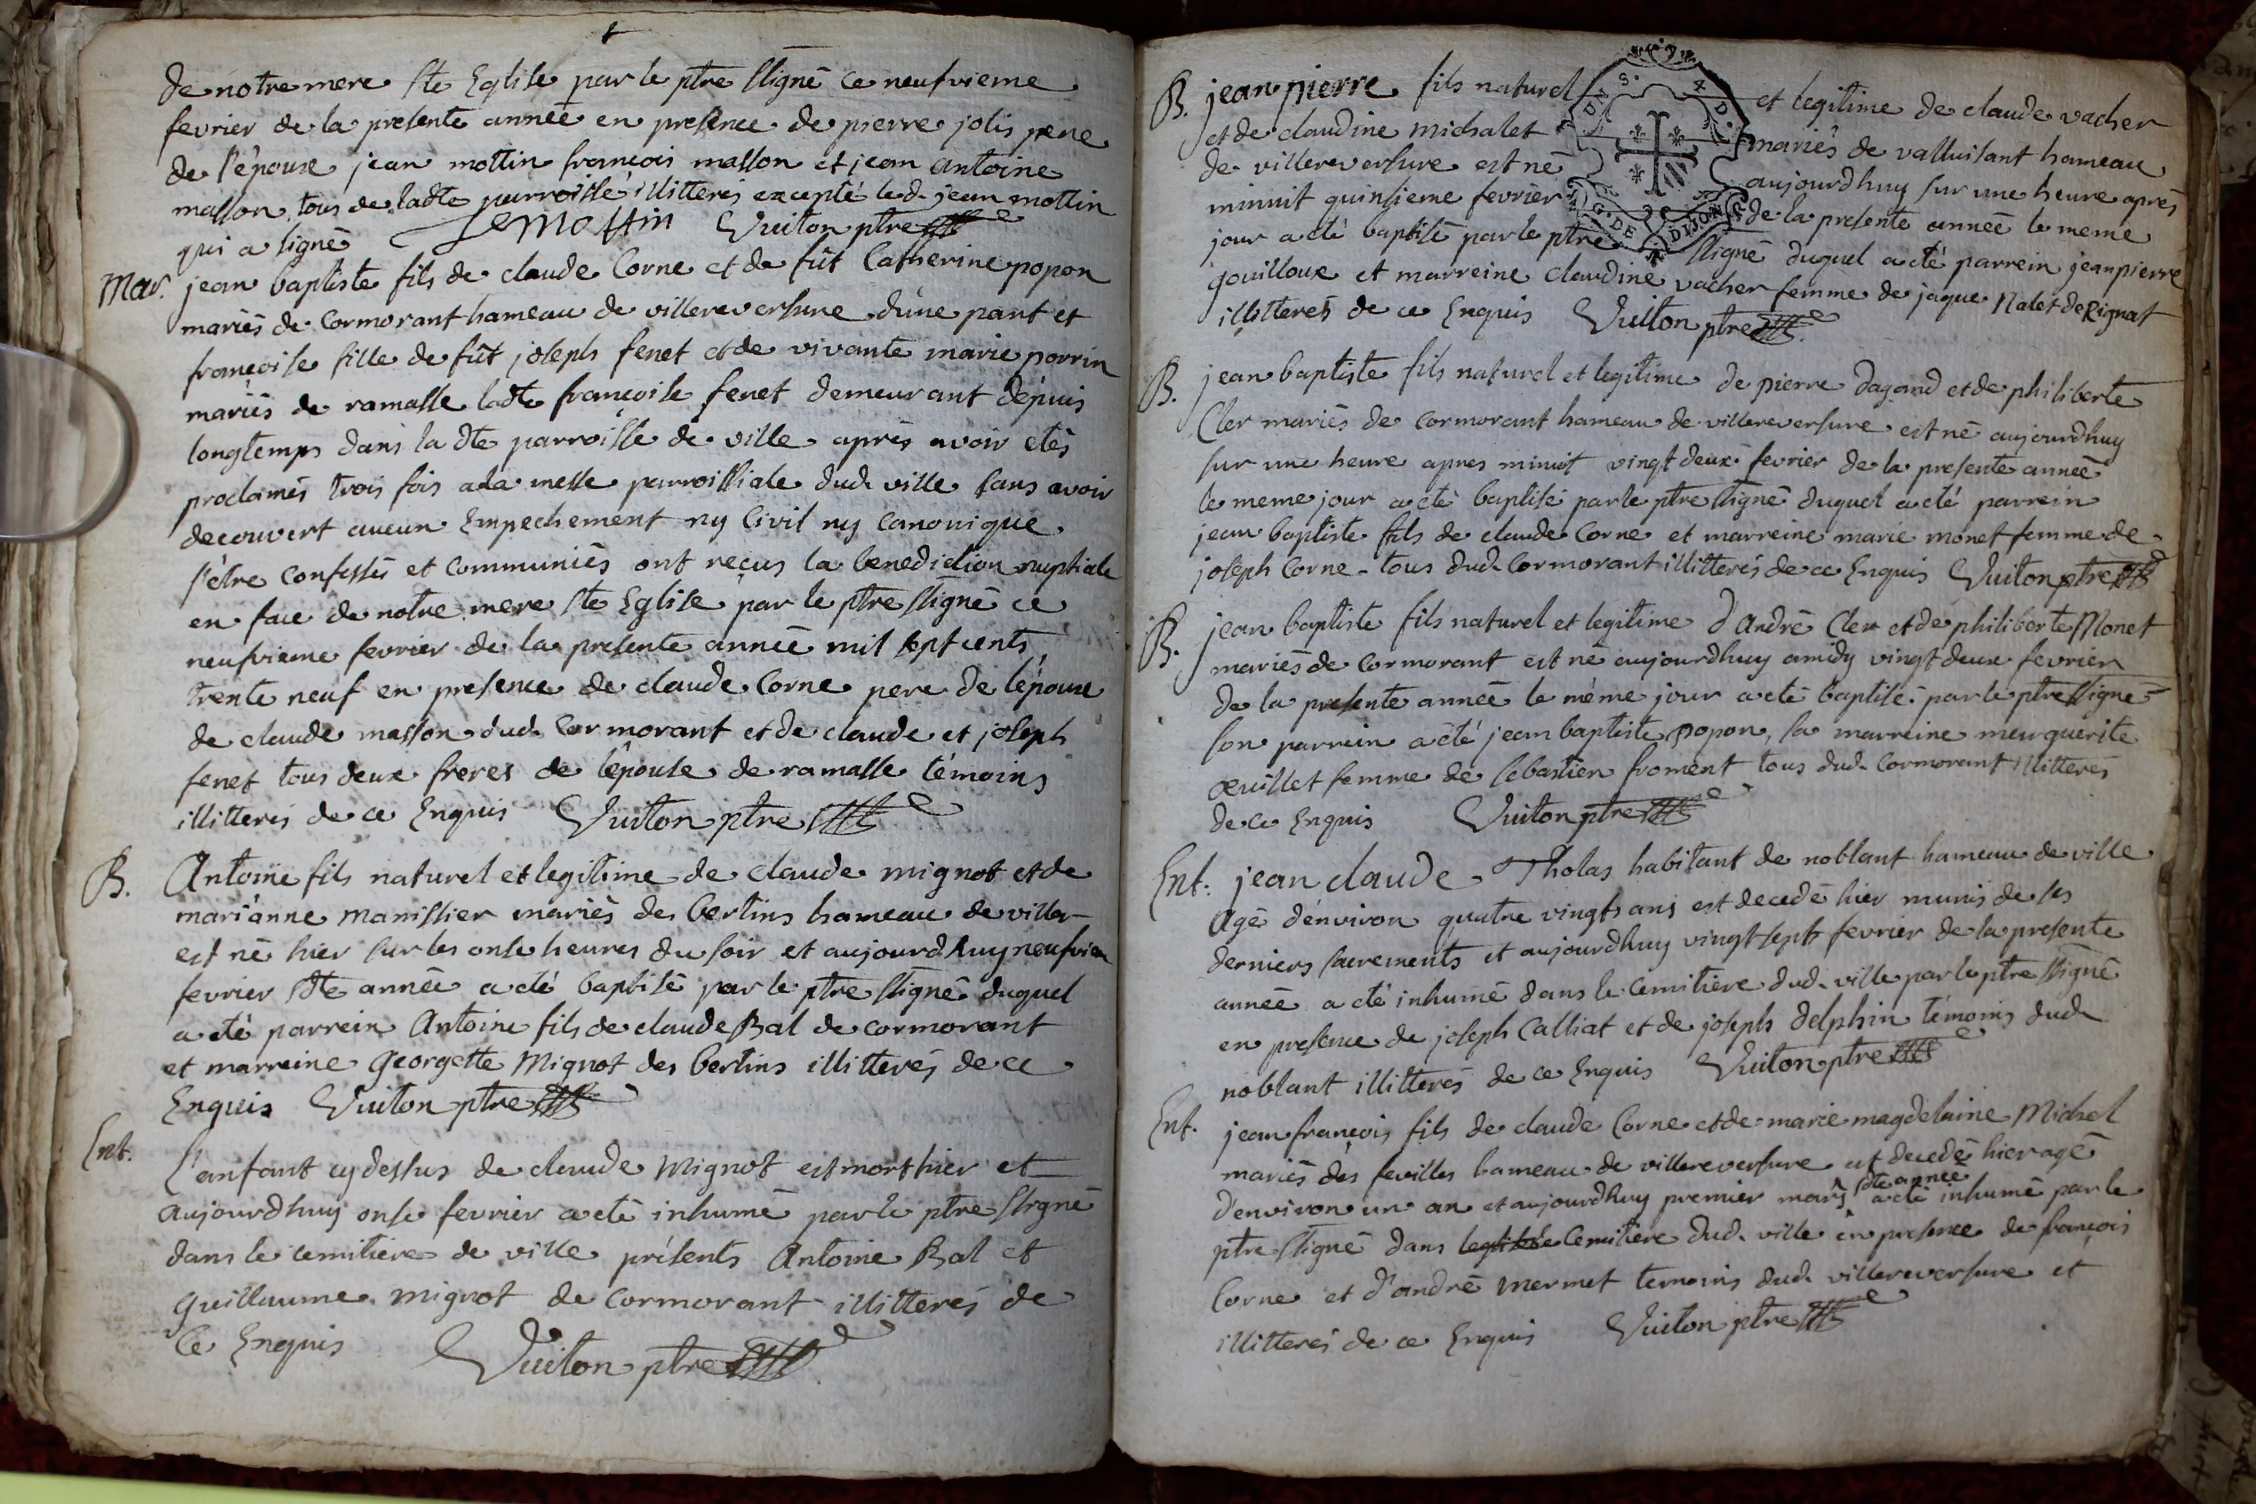 de notre mere Ste Eglise par le ptre ssigné ce neufvieme
fevrier de la presente année en presence de pierre jolis pere
de l'épouse jean mottin françois masson et jean antoine
masson tous de ladte parroisse illitterés excepté led. jean mottin
qui a signé J Mottin Vuiton ptre
Mar. jean baptiste fils de claude Corne et de fût Catherine popon
mariés de Cormorant hameau de villereversure d'une part et
françoise fille de fût joseph fenet et de vivante marie porrin
mariés de ramasse ladte françoise fenet demeurant dépuis
longtemps dans la dte parroisse de ville après avoir etés
proclamés trois fois a la messe parroissiale dud. ville sans avoir
decouvert aucun Empechement ny Civil ny Canonique
s'être Confessés et Communiés ont reçus la benediction nuptiale
en face de notre mere Ste Eglise par le ptre ssigné ce
neufvieme fevrier de la presente année mil sept cents
trente neuf en presence de claude Corne pere de l'épouse
de claude masson dud. Cormorant et de claude et joseph
fenet tous deux freres de l'épouse de ramasse témoins
illitterés de ce Enquis Vuiton ptre
B. Antoine fils naturel et legitime de claude mignot et de
marianne manissier mariés des bertins hameau de viller
est né hier sur les onse heures du soir et aujourdhuy neufviem
fevrier sdte année a eté baptisé par le ptre ssigné duquel
a eté parrein Antoine fils de claude Bal de cormorant
et marreine georgette Mignot des bertins illitterés de ce
Enquis Vuiton ptre
Ent. L'anfant cy dessus de claude Mignot est mort hier et
aujourdhuy onse fevrier a eté inhumé par le ptre ssigné
dans le cemitiere de ville présents Antoine Bal et
guillaume mignot de cormorant illitterés de
Ce Enquis Vuiton ptre
B. jean pierre fils naturel et legitime de claude vacher
et de claudine michalet mariés de valluisant hameau
de villereversure est né aujourdhuy sur une heure après
minuit quinsieme fevrier de la presente année le meme
jour a eté baptisé par le ptre ssigné duquel a eté parrein jean pierre
gouilloux et marreine claudine vacher femme de jaque Nalet de Rignat
illitterés de ce Enquis Vuiton ptre
G. DE DIJON
B. jean baptiste fils naturel et legitime de pierre dagand et de philiberte
Cler mariés de Cormorant hameau de villereversure est né aujourdhuy
sur une heure apres minuit vingt deux fevrier de la presente année
le meme jour a eté baptisé par le ptre ssigné duquel a eté parrein
jean baptiste fils de claude Corne et marreine marie monet femme de
joseph Corne tous dud. Cormorant illitterés de ce Enquis Vuiton ptre
B. jean baptiste fils naturel et legitime d'André Cler et de philiberte Monet
mariés de Cormorant est né aujourdhuy a midy vingt deux fevrier
de la presente année le même jour a eté baptisé par le ptre ssigné
son parrein a eté jean baptiste popon, sa marreine merguerite
œuillet femme de sebastien froment tous dud. Cormorant illitterés
de ce Enquis Vuiton ptre
Ent. jean claude Tholas habitant de noblant hameau de ville
agé d'environ quatre vingts ans est decedé hier munis de ses
derniers sacrements et aujourdhuy vingt sept fevrier de la presente
année a eté inhumé dans le Cemitiere dud. ville par le ptre ssigné
en presence de joseph Calliat et de joseph delphin témoins dud
noblant illitterés de ce Enquis Vuiton ptre
Ent. jean françois fils de claude Corne et de marie magdelaine Michel
mariés des feuilles hameau de villereversure est decedé hier agé
d'environ un an et aujourdhuy premier mars sdte année a eté inhumé par le
ptre ssigné dans Cemitiere dud. ville en presence de françois
Corne et d'andré mermet temoins dud. villereversure et
illitterés de ce Enquis Vuiton ptre